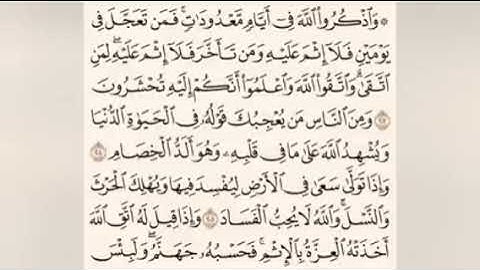 ۞ وَٱذۡكُرُواْ ٱللَّهَ فِيٓ أَيَّامٖ مَّعۡدُودَٰتٖۚ فَمَن تَعَجَّلَ فِي
يَوۡمَيۡنِ فَلَآ إِثۡمَ عَلَيۡهِ وَمَن تَأَخَّرَ فَلَآ إِثۡمَ عَلَيۡهِۖ لِمَنِ
ٱتَّقَىٰۗ وَٱتَّقُواْ ٱللَّهَ وَٱعۡلَمُوٓاْ أَنَّكُمۡ إِلَيۡهِ تُحۡشَرُونَ
٢٠٣ وَمِنَ ٱلنَّاسِ مَن يُعۡجِبُكَ قَوۡلُهُۥ فِي ٱلۡحَيَوٰةِ ٱلدُّنۡيَا
وَيُشۡهِدُ ٱللَّهَ عَلَىٰ مَا فِي قَلۡبِهِۦ وَهُوَ أَلَدُّ ٱلۡخِصَامِ ٢٠٤
وَإِذَا تَوَلَّىٰ سَعَىٰ فِي ٱلۡأَرۡضِ لِيُفۡسِدَ فِيهَا وَيُهۡلِكَ ٱلۡحَرۡثَ
وَٱلنَّسۡلَۚ وَٱللَّهُ لَا يُحِبُّ ٱلۡفَسَادَ ٢٠٥ وَإِذَا قِيلَ لَهُ ٱتَّقِ ٱللَّهَ
أَخَذَتۡهُ ٱلۡعِزَّةُ بِٱلۡإِثۡمِۚ فَحَسۡبُهُۥ جَهَنَّمُۖ وَلَبِئۡسَ